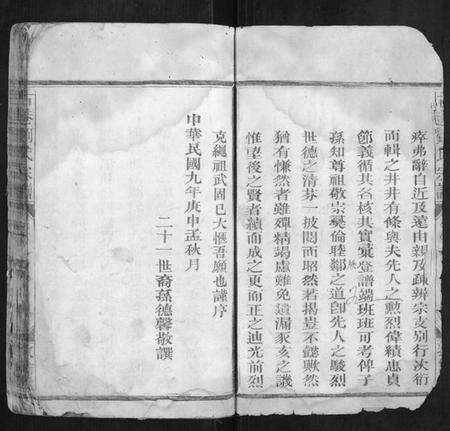 瘁弗辭自近及遠由親及疎辨宗支別行次衍
而輯之井井有條與夫先人之勲烈偉績忠貞
節義循其名核其實彙登譜端班班可考俾子
孫知尊祖敬宗彝倫睦鄰之道卽先人之駿烈
世德之清芬一披閱而昭然若揭豈不懿歟然
猶有慊然者雖殫精竭慮難免遺漏豕亥之譏
惟望後之賢者續而成之更而正之迪光前烈
克繩祖武固已大愜吾願也謹序
中華民國九年庚申孟秋月
二十一世裔孫德馨敬譔